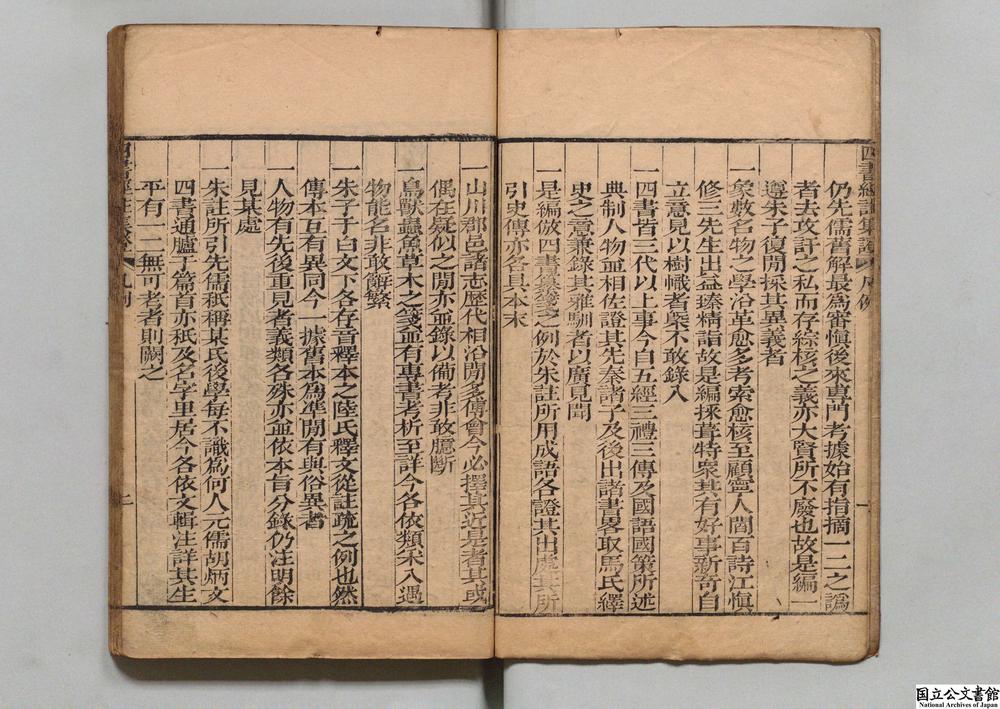 四書經註集證 凡例 一
仍先儒舊解最為審慎後來專門考據始有指摘一二之譌
者去攻訐之私而存綜核之義亦大賢所不廢也故是編一
遵朱子復閒採其異義者
一象數名物之學沿革愈多考索愈核至顧寧人閻百詩江慎
修三先生出益臻精詣故是編採葺特衆其有好事新奇自
立意見以樹幟者槩不敢錄入
一四書皆三代以上事今自五經三禮三傳及國語國策所述
典制人物並相佐證其先秦諸子及後出諸書畧取馬氏繹
史之意兼錄其雅馴者以廣見聞
一是編倣四書之例於朱註所用成語各證其出處其所
引史傳亦各具本末
一山川郡邑諸志歷代相沿閒多傳會今必擇其近是者其或
偶在疑似之閒亦並錄以備考非敢臆斷
一鳥獸蟲魚草木之箋並有專書考析至詳今各依類采入遇
物能名非敢辭繁
一朱子于白文下各存音釋本之陸氏釋文從註疏之例也然
傳本互有異同今一據舊本為準閒有與俗異者
一人物有先後重見者義類各殊亦並依本旨分錄仍注明餘
見某處
一朱註所引先儒秪稱某氏後學每不識為何人元儒胡炳文
四書通臚于篇首亦秪及名字里居今各依文輯注詳其生
平有一二無可考者則闕之
凡例 二
国立公文書館
National Archives of Japan